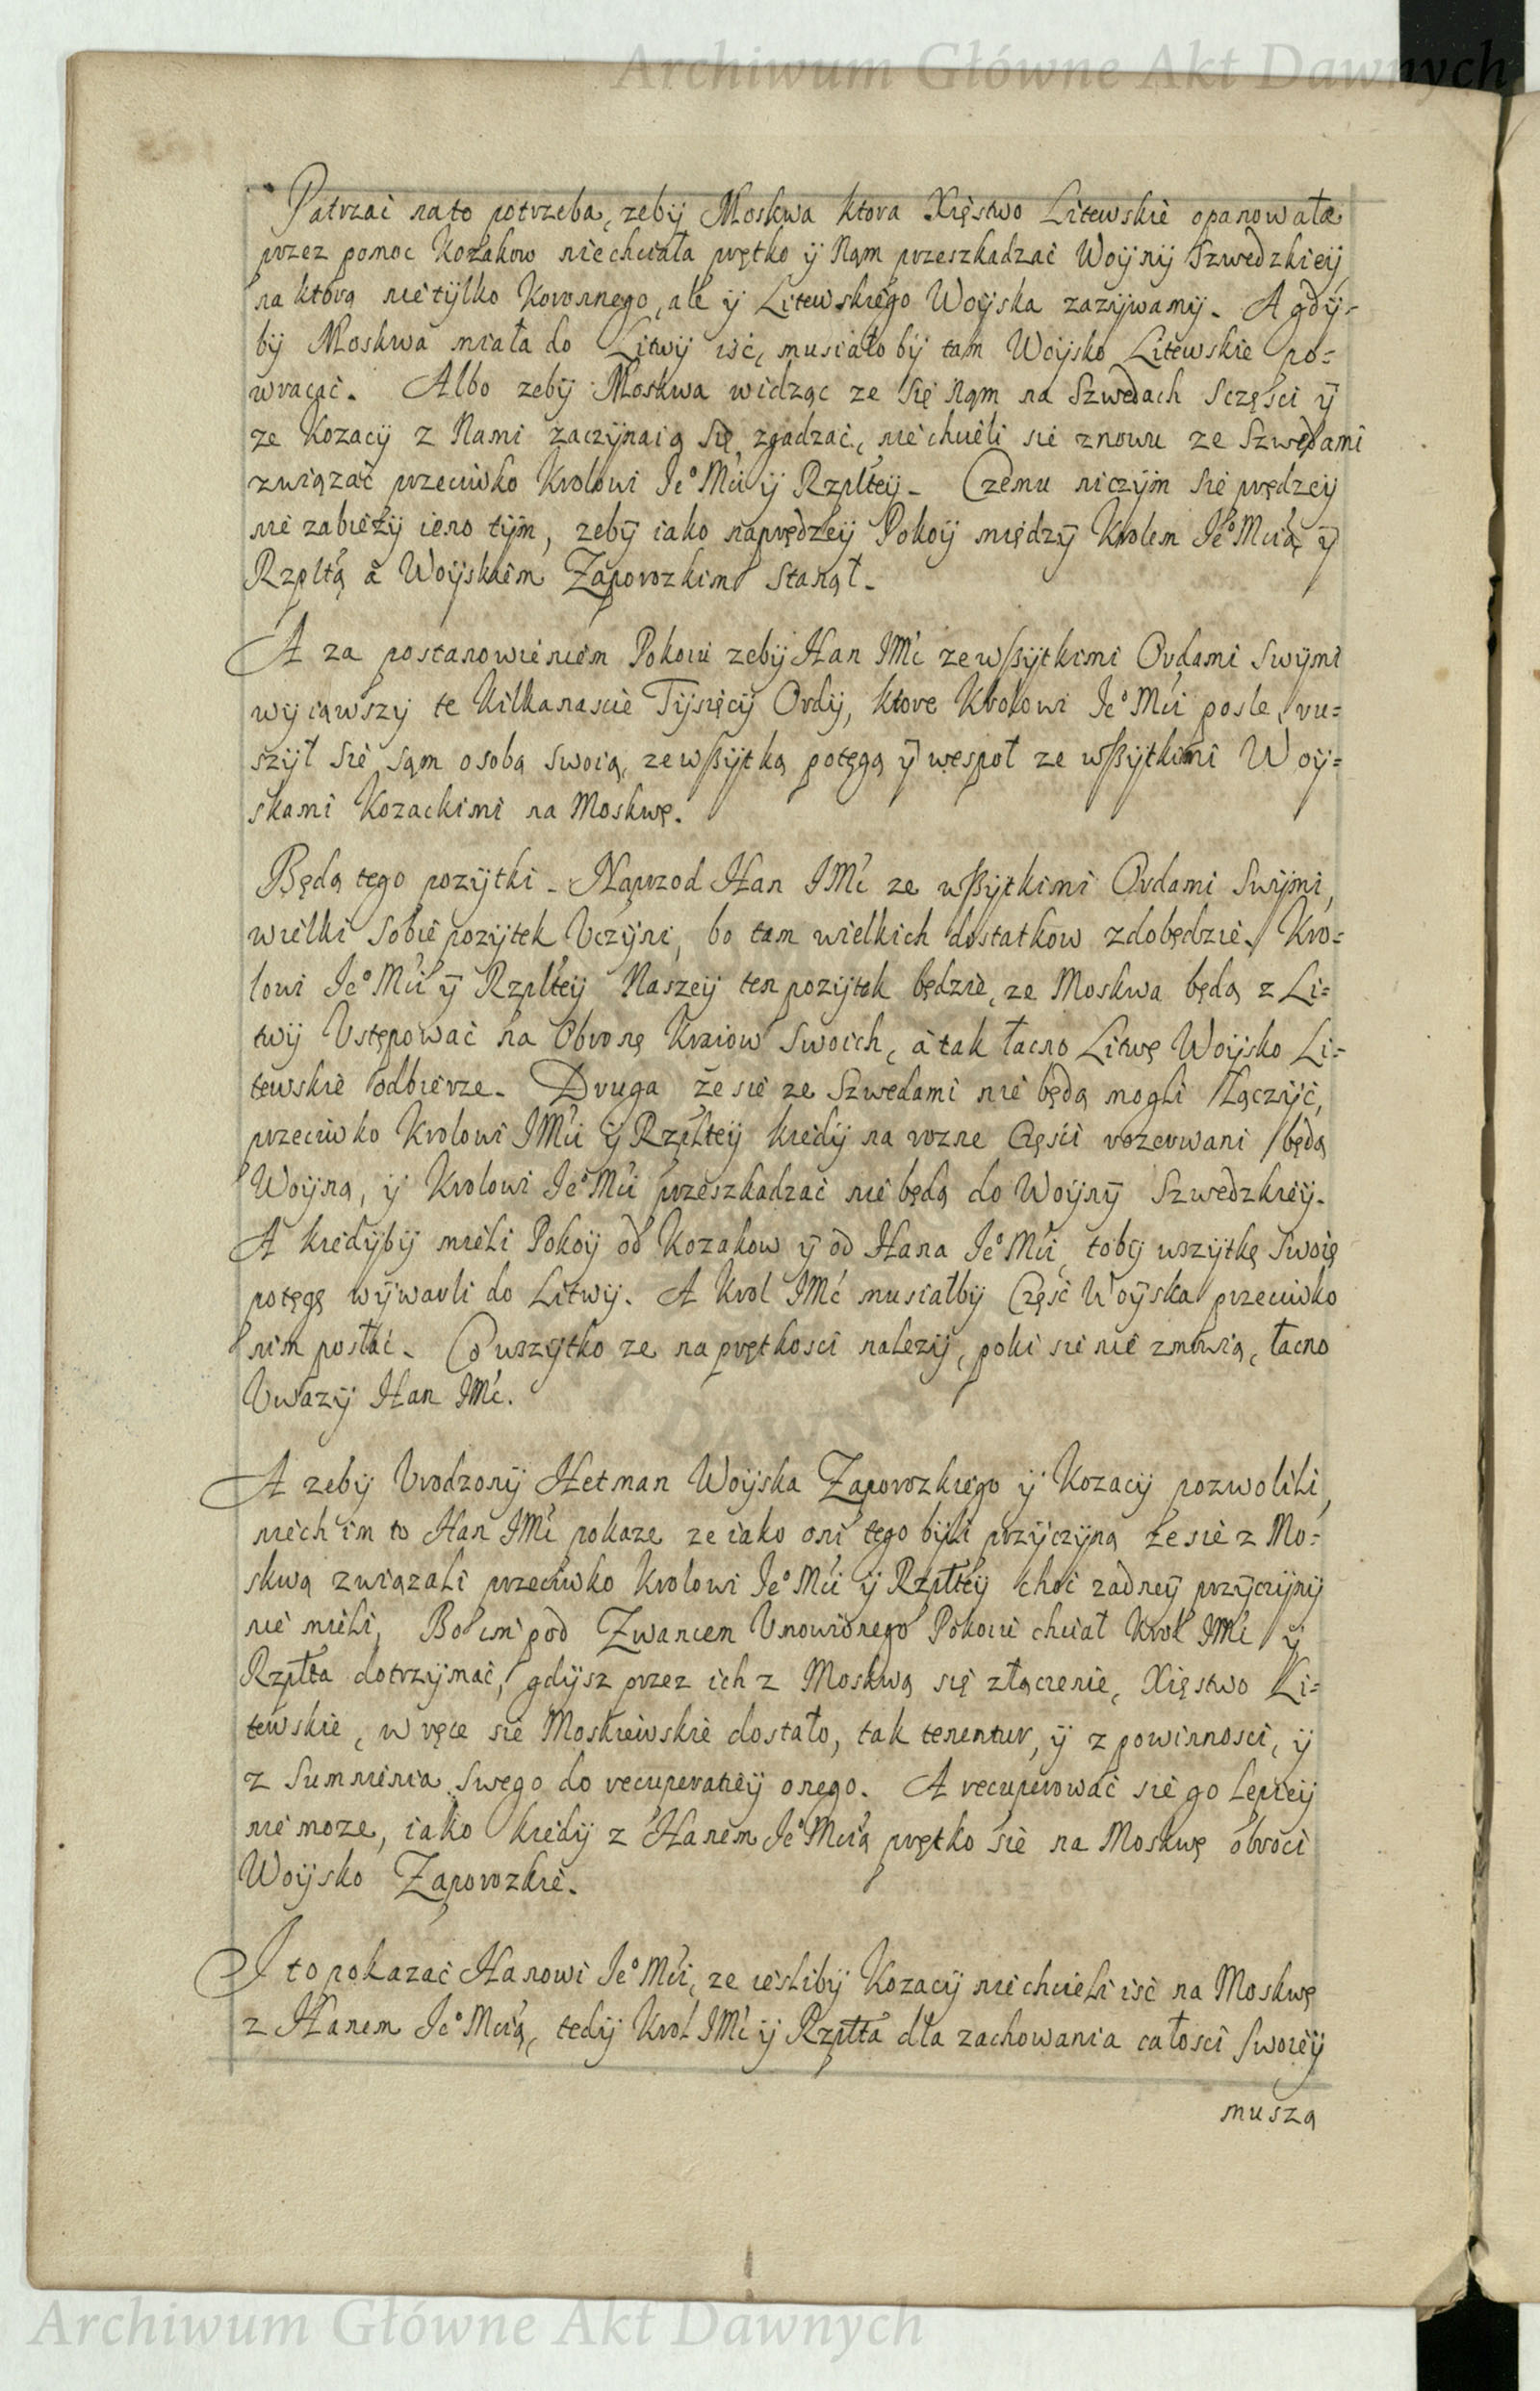 Archiwum Główne Akt Dawnych
Patrzać nato potrzeba, zeby Moskwa ktora Xięstwo Litewskie opanowała
przez pomoc Kozakow niechciała prętko ÿ Nąm przeszkadzać Woÿnÿ Szwedzkieÿ
na ktorą nietÿlko Koronnego, ale ÿ Litewskiego Woÿska zazÿwamÿ. A gdÿ=
bÿ Moskwa miała do Litwÿ iśc, musiałobÿ tam Woÿsko Litewskie po=
wracać. Albo zebÿ Moskwa widząc ze się Nąm na Szwedach Sczęsci ÿ
ze Kozacÿ z Nami zaczÿnaią się zgadzać, niechcieli sie znowu ze Szwedami
związać przeciwko Krolowi Jeº Mći ÿ Rzplteÿ. Czemu niczÿm sie prędzeÿ
nie zabieżÿ ieno tÿm, zebÿ iako naprędzeÿ Pokoÿ międzÿ Krolem Jeº Mcią ÿ
Rzpltą á Woÿskiem Zaporozkim stanął.
A za postanowieniem Pokoiu zebÿ Han JMć zewszÿtkimi Ordami Swÿmi
wÿiąwszÿ te kilkanascie Tÿsięcÿ Ordÿ, ktore Krolowi Jeº Mći posle, ru=
szÿł sie sąm osobą swoią, zewszÿtką potęgą ÿ wespoł ze wszÿtkimi Woÿ=
skami Kozackimi na Moskwę.
Będą tego pozÿtki. Naprzod Han JMć ze wszÿtkimi Ordami Swÿmi,
wielki sobie pozÿtek Vczÿni, bo tam wielkich dostatkow zdobędzie. Kro=
lowi Jeº Mći ÿ Rzplteÿ Naszeÿ ten pozÿtek będzie, ze Moskwa będą z Li=
twÿ Vstępować na Obronę Kraiow Swoich, á tak łacno Litwę Woÿsko Li=
tewskie odbierze. Druga że sie ze Szwedami nie będą mogli złączÿć,
przeciwko Krolowi JMći ÿ Rzplteÿ kiedÿ na rozne Części rozerwani będą
Woÿną, ÿ Krolowi Jeº Mći przeszkadzać nie będą do Woÿnÿ Szwedzkieÿ.
A kiedÿbÿ mieli Pokoÿ od Kozakow ÿ od Hana Jeº Mći, tobÿ wszÿtkę Swoię
potęgę wÿwarli do Litwÿ. A Krol JMć musiałbÿ Część Woÿska przeciwko
nim posłać. Co wszÿtko ze na prętkosci nalezÿ, poki sie nie zmowią, łacno
Vwazÿ Han JMć.
A zebÿ Vrodzonÿ Hetman Woÿska Zaporozkiego ÿ Kozacÿ pozwolili,
niech im to Han JMć pokaze ze iako oni tego bÿli przÿczÿną że sie z Mo=
skwą związali przeciwko Krolowi Jeº Mći ÿ Rzplteÿ choć zadneÿ przÿczÿnÿ
nie mieli, Bo im pod Zwancem Vmowionego Pokoiu chciał Krol JMć ÿ
Rzplta dotrzÿmać, gdÿsz przez ich z Moskwą się złączenie, Xięstwo Li=
tewskie, w ręce sie Moskiewskie dostało, tak tenentur, ÿ z powinnosci, ÿ
z Sumnienia swego do recuperatieÿ onego. A recuperować sie go lepieÿ
nie moze, iako kiedÿ z Hanem Jeº Mcią prętko sie na Moskwę obroci
Woÿsko Zaporozkie.
I to pokazać Hanowi Jeº Mći, ze iesliby Kozacÿ niechcieli iść na Moskwę
z Hanem Jeº Mcią, tedÿ Krol JMć ÿ Rzplta dla zachowania całosci Swoieÿ
muszą
Archiwum Główne Akt Dawnych